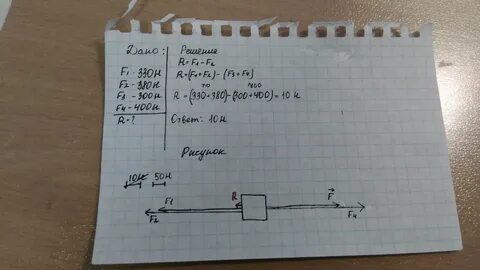 Дано:
F1 - 330 Н
F2 - 380 Н
F3 - 300 Н
F4 - 400 Н
R - ?
Решение
R = F1 - F2
R = (F1 + F2) - (F3 + F4)
R = (330 + 380) - (300 + 400) = 10 Н
Ответ: 10 Н
Рисунок
10Н 50Н
F1 R F
F2 F4